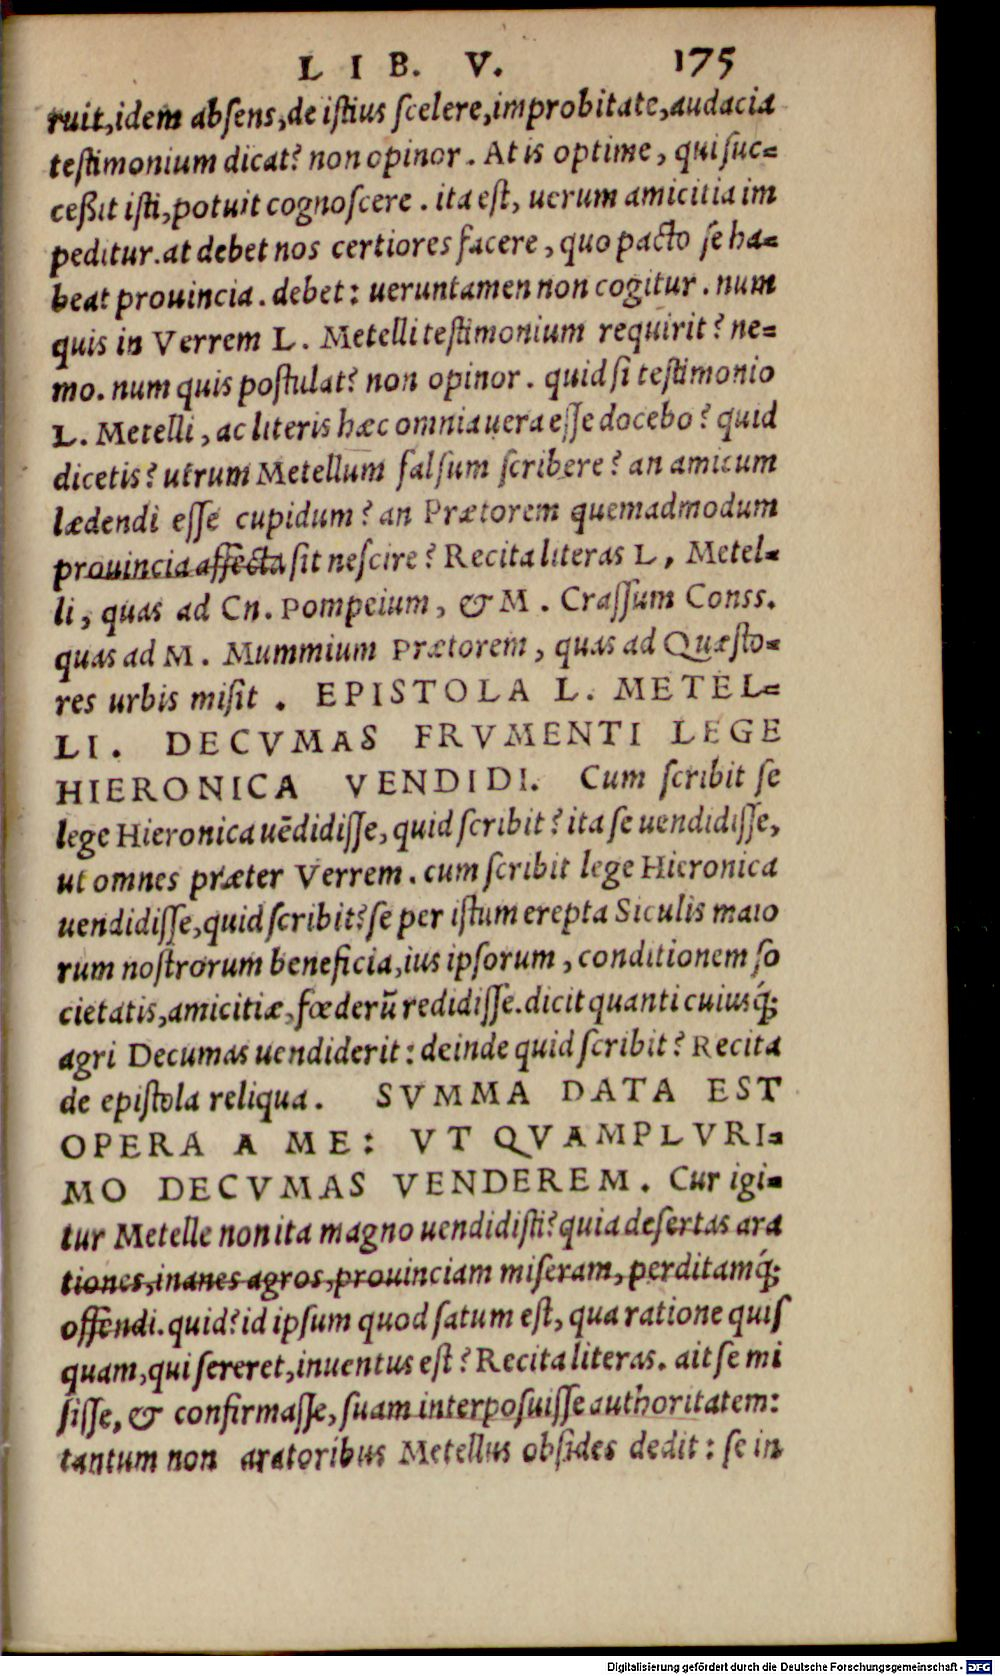 LIB. V. 175
ruit,idem absens,de iſtius ſcelere,improbitate,audacia
teſtimonium dicat? non opinor. At is optime, qui ſuc=
ceßit iſti,potuit cognoſcere. ita eſt, uerum amicitia im
peditur.at debet nos certiores facere, quo pacto ſe ha=
beat prouincia. debet: ueruntamen non cogitur. num
quis in Verrem L. Metelli teſtimonium requirit? ne=
mo. num quis poſtulat? non opinor. quid ſi teſtimonio
L. Metelli, ac literis hæc omnia uera eſſe docebo? quid
dicetis? utrum Metellum falſum ſcribere? an amicum
lædendi eſſe cupidum? an Prætorem quemadmodum
prouincia affecta ſit neſcire? Recita literas L, Metel=
li, quas ad Cn. Pompeium, & M. Craſſum Conss.
quas ad M. Mummium Prætorem, quas ad Quæſto=
res urbis miſit. EPISTOLA L. METEL=
LI. DECVMAS FRVMENTI LEGE
HIERONICA VENDIDI. Cum ſcribit ſe
lege Hieronica uēdidiſſe, quid ſcribit? ita ſe uendidiſſe,
ut omnes præter Verrem. cum ſcribit lege Hieronica
uendidiſſe,quid ſcribit?ſe per iſtum erepta Siculis maio
rum noſtrorum beneficia,ius ipſorum, conditionem ſo
cietatis,amicitiæ,fœderū redidiſſe.dicit quanti cuiusq́;
agri Decumas uendiderit: deinde quid ſcribit? Recita
de epiſtola reliqua. SVMMA DATA EST
OPERA A ME: VT QVAMPLVRI=
MO DECVMAS VENDEREM. Cur igi=
tur Metelle non ita magno uendidiſti?quia deſertas ara
tiones,inanes agros,prouinciam miſeram,perditamq́;
offendi.quid?id ipſum quod ſatum eſt, qua ratione quiſ
quam,qui ſereret,inuentus eſt? Recita literas. ait ſe mi
ſiſſe, & confirmaſſe, ſuam interpoſuiſſe authoritatem:
tantum non aratoribus Metellus obſides dedit: ſe in
Digitalisierung gefördert durch die Deutsche Forschungsgemeinschaft - DFG